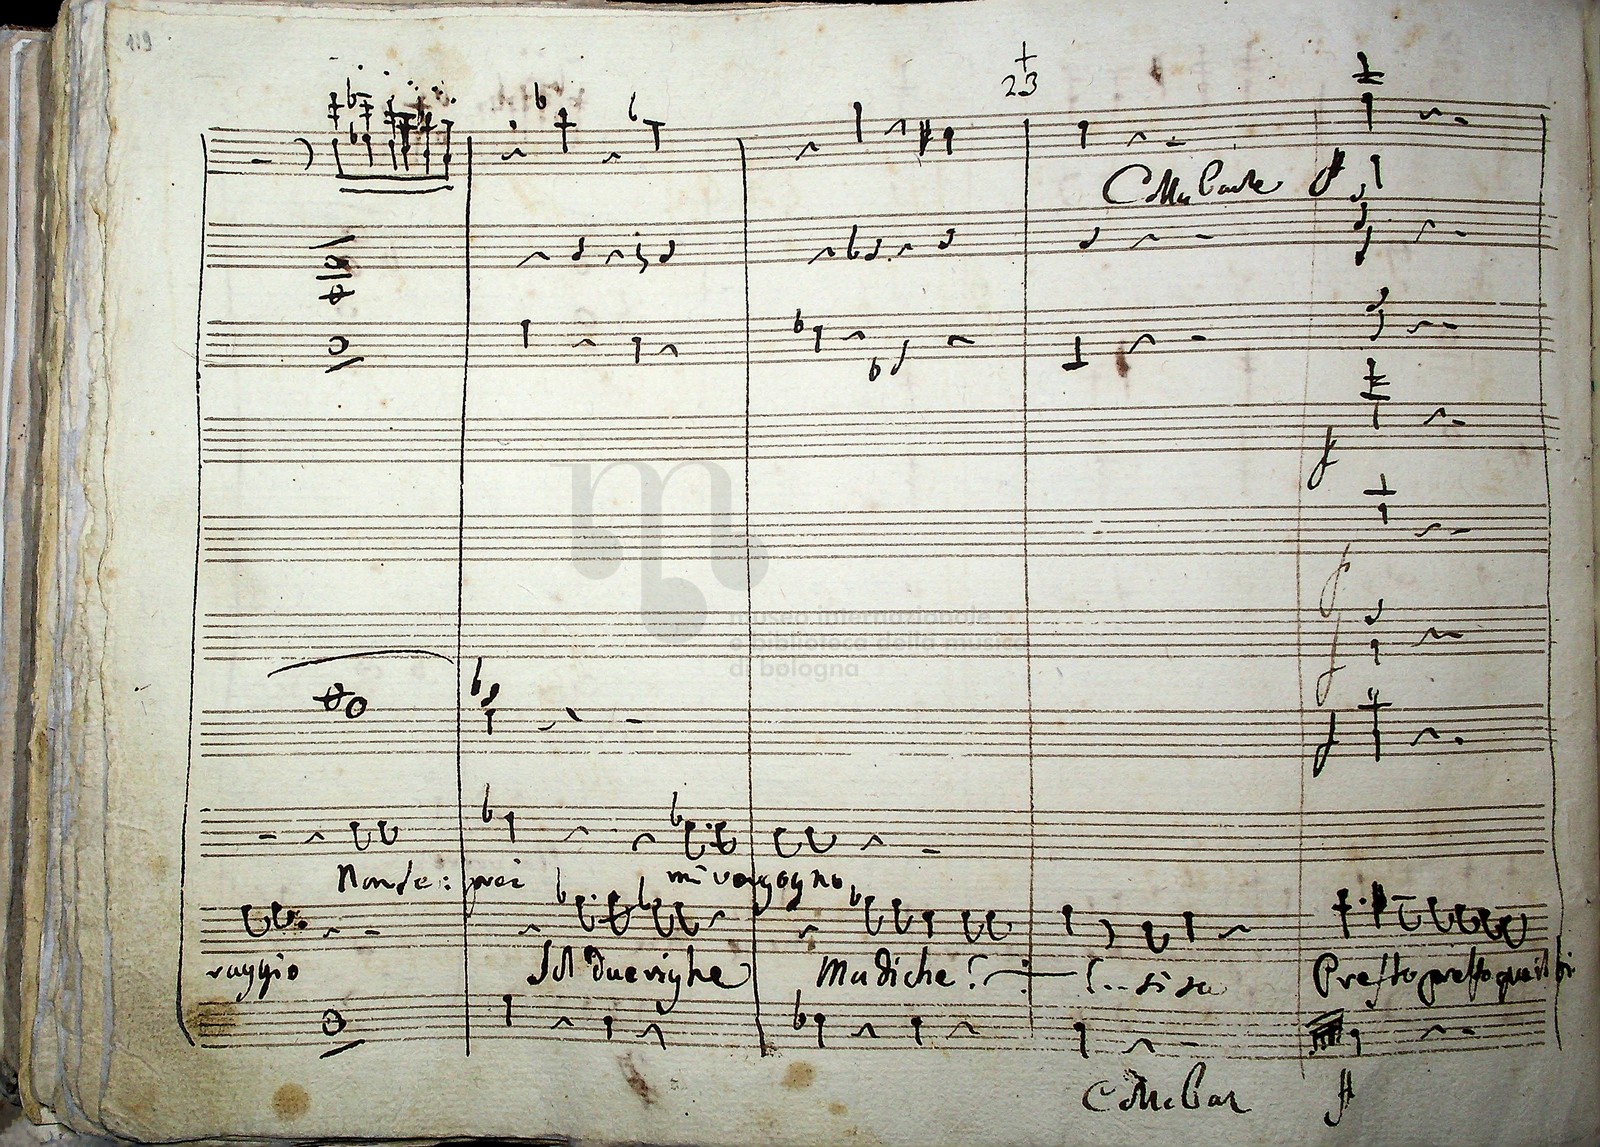 119
23
Colla Parte
museo internazionale
e biblioteca della musica
di bologna
Non so: poi mi vergogno
raggio Sol due righe Ma di che? si sa Presto presto qui
Colla Par